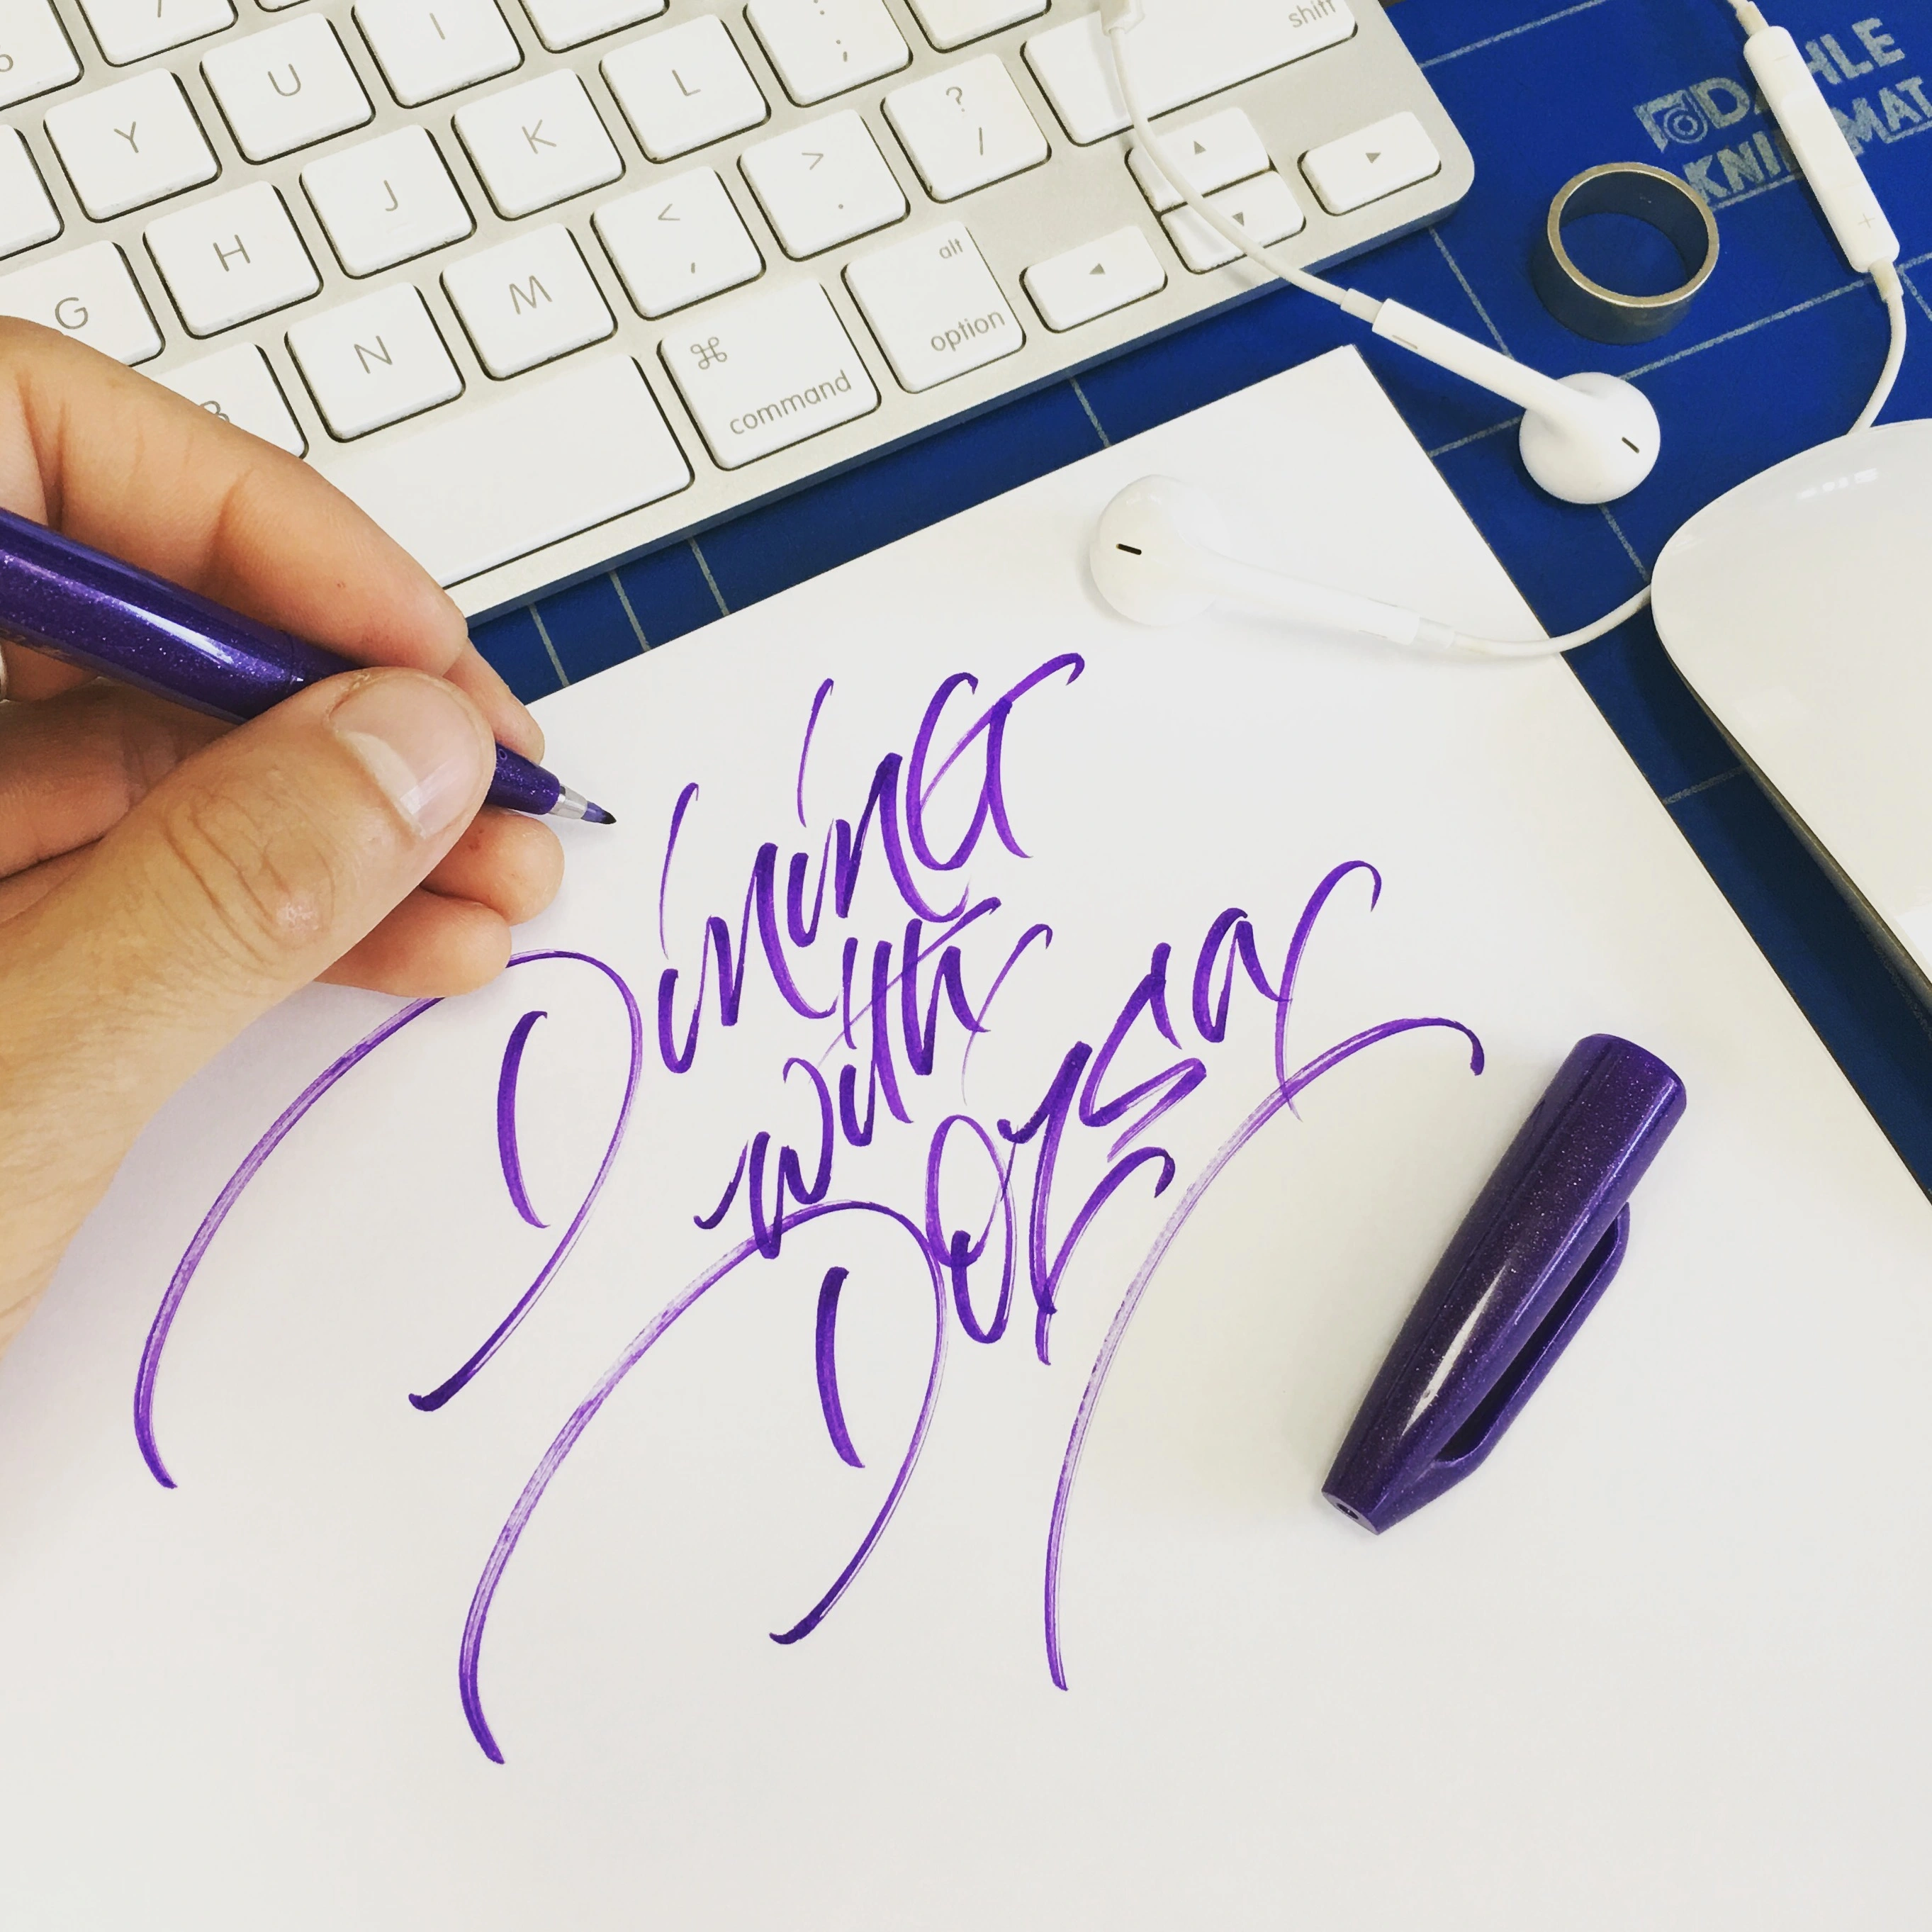 shift
Y U I
: ;
H J K L
? /
G
> .
N M < ,
B
alt
option
⌘
command
DAHLE
KNI MAT
Dining
with
Dorsa